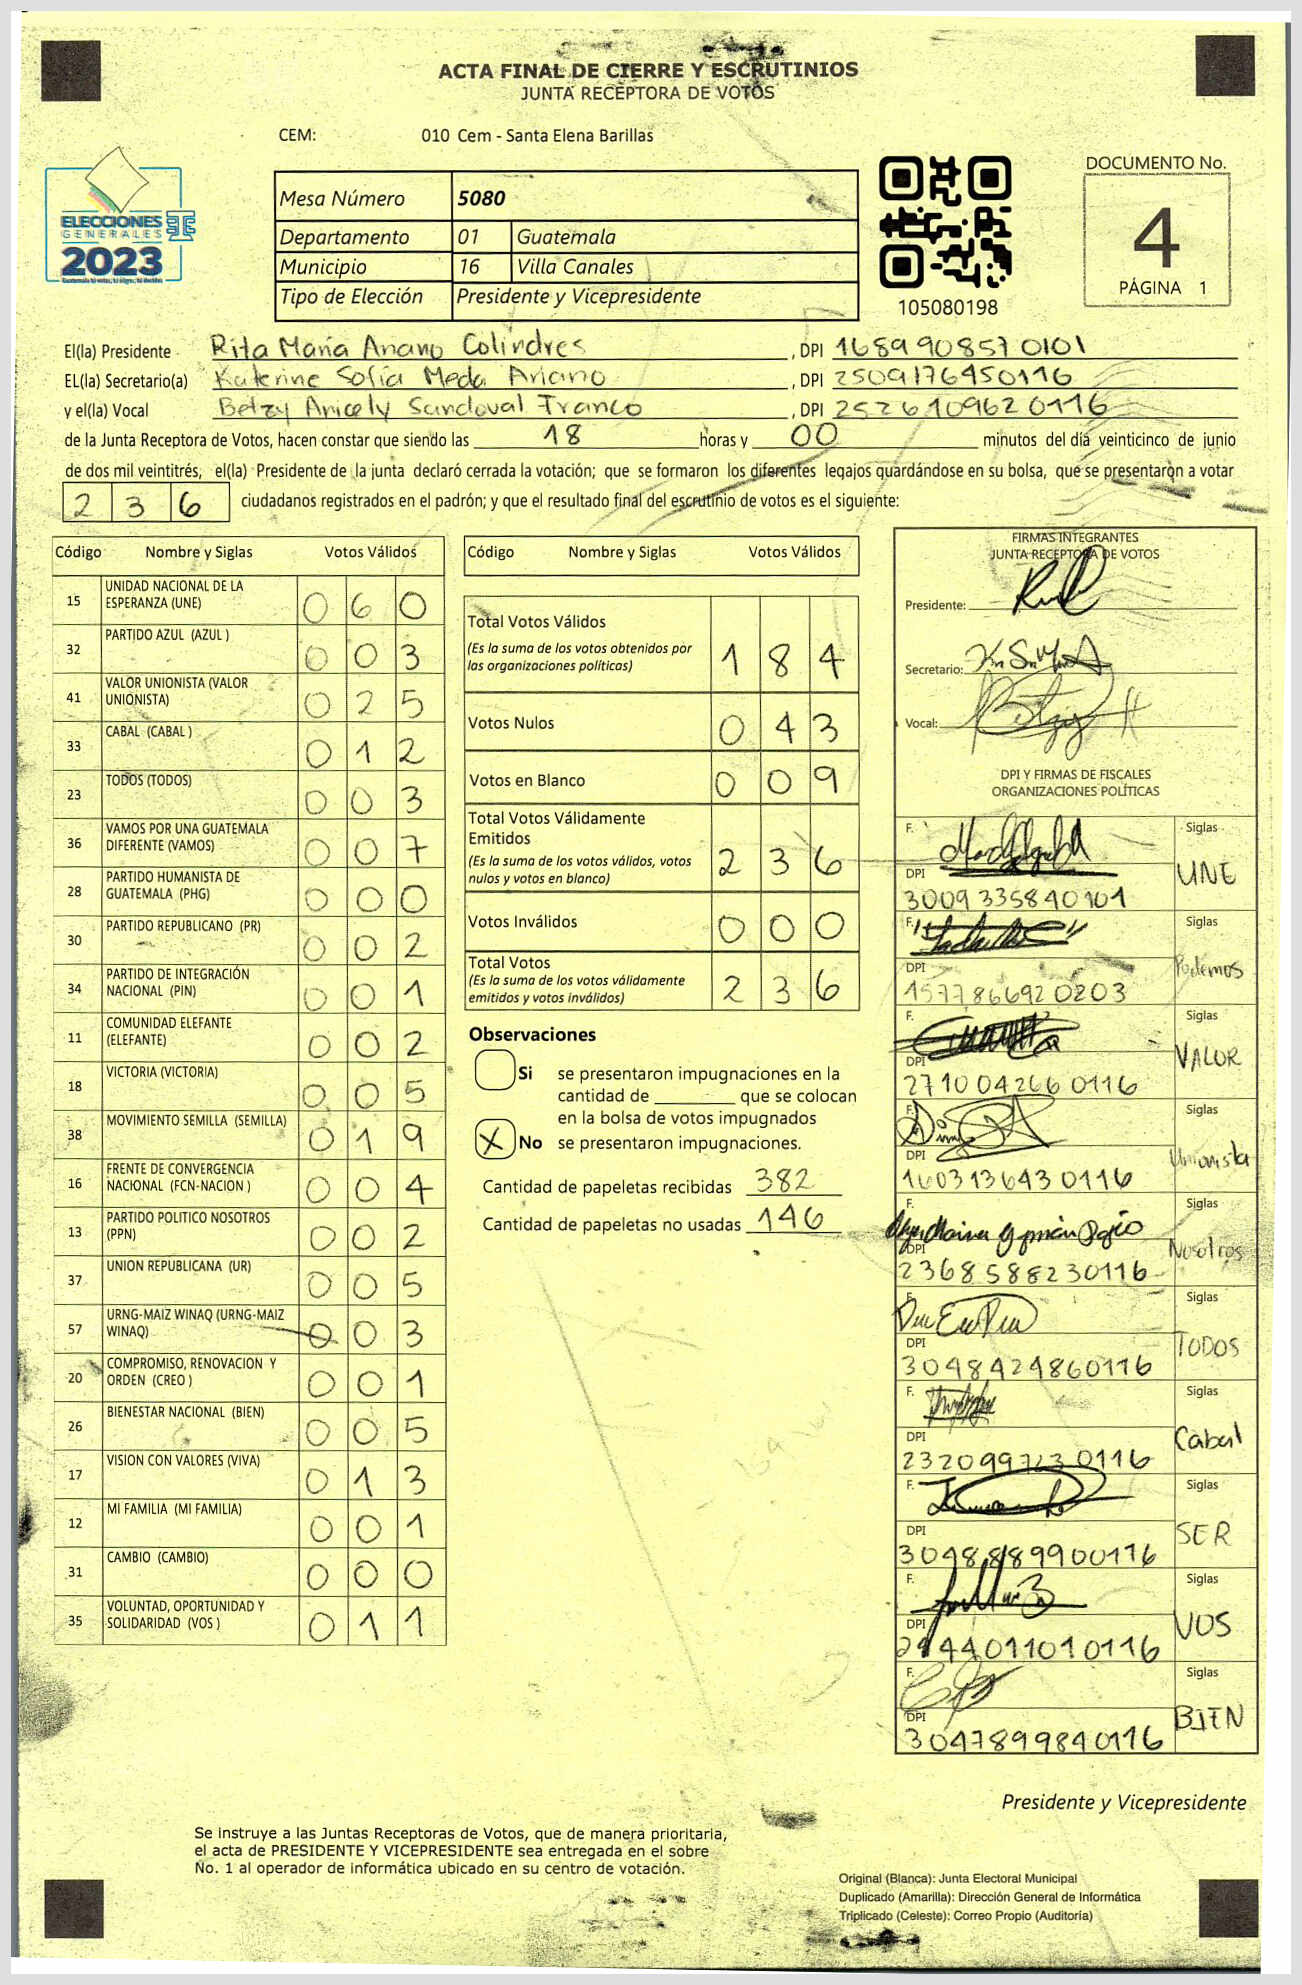 ACTA FINAL DE CIERRE Y ESCRUTINIOS
JUNTA RECEPTORA DE VOTOS
CEM: 010 Cem - Santa Elena Barillas
ELECCIONES
GENERALES
2023
Mesa Número 5080
Departamento 01 Guatemala
Municipio 16 Villa Canales
Tipo de Elección Presidente y Vicepresidente
105080198
DOCUMENTO No.
4
PÁGINA 1
El(la) Presidente Rita Maria Anano Colindres, DPI 1689908570101
EL(la) Secretario(a) Katerine Sofia Meda Ariano, DPI 2509176450116
y el(la) Vocal Betzy Aricely Sandoval Franco, DPI 2526109620116
de la Junta Receptora de Votos, hacen constar que siendo las 18 horas y 00 minutos del día veinticinco de junio
de dos mil veintitrés, el(la) Presidente de la junta declaró cerrada la votación; que se formaron los diferentes legajos guardándose en su bolsa, que se presentaron a votar
236 ciudadanos registrados en el padrón; y que el resultado final del escrutinio de votos es el siguiente:
Código Nombre y Siglas Votos Válidos
15 UNIDAD NACIONAL DE LA ESPERANZA (UNE) 060
32 PARTIDO AZUL (AZUL ) 003
41 VALOR UNIONISTA (VALOR UNIONISTA) 025
33 CABAL (CABAL ) 012
23 TODOS (TODOS) 003
36 VAMOS POR UNA GUATEMALA DIFERENTE (VAMOS) 007
28 PARTIDO HUMANISTA DE GUATEMALA (PHG) 000
30 PARTIDO REPUBLICANO (PR) 002
34 PARTIDO DE INTEGRACIÓN NACIONAL (PIN) 001
11 COMUNIDAD ELEFANTE (ELEFANTE) 002
18 VICTORIA (VICTORIA) 005
38 MOVIMIENTO SEMILLA (SEMILLA) 019
16 FRENTE DE CONVERGENCIA NACIONAL (FCN-NACION ) 004
13 PARTIDO POLITICO NOSOTROS (PPN) 002
37 UNION REPUBLICANA (UR) 005
57 URNG-MAIZ WINAQ (URNG-MAIZ WINAQ) 003
20 COMPROMISO, RENOVACION Y ORDEN (CREO ) 001
26 BIENESTAR NACIONAL (BIEN) 005
17 VISION CON VALORES (VIVA) 013
12 MI FAMILIA (MI FAMILIA) 001
31 CAMBIO (CAMBIO) 000
35 VOLUNTAD, OPORTUNIDAD Y SOLIDARIDAD (VOS ) 011
Código Nombre y Siglas Votos Válidos
Total Votos Válidos 184
(Es la suma de los votos obtenidos por
las organizaciones políticas)
Votos Nulos 043
Votos en Blanco 009
Total Votos Válidamente
Emitidos 236
(Es la suma de los votos válidos, votos
nulos y votos en blanco)
Votos Inválidos 000
Total Votos 236
(Es la suma de los votos válidamente
emitidos y votos inválidos)
Observaciones
Si se presentaron impugnaciones en la
cantidad de ________ que se colocan
en la bolsa de votos impugnados
X No se presentaron impugnaciones.
Cantidad de papeletas recibidas 382
Cantidad de papeletas no usadas 146
FIRMAS INTEGRANTES
JUNTA RECEPTORA DE VOTOS
Presidente:
Secretario:
Vocal:
DPI Y FIRMAS DE FISCALES
ORGANIZACIONES POLÍTICAS
F. Siglas
UNE
DPI
3009335840101
F. Siglas
Podemos
DPI
1577866920203
F. Siglas
VALOR
DPI
2710042660116
F. Siglas
Unionista
DPI
1603136430116
F. Siglas
Nosotros
DPI
2368588230116
F. Siglas
TODOS
DPI
3048424860116
F. Siglas
Cabal
DPI
F. Siglas
SER
DPI
3048889900116
F. Siglas
VOS
DPI
F. Siglas
BIEN
DPI
3047899840116
Presidente y Vicepresidente
Se instruye a las Juntas Receptoras de Votos, que de manera prioritaria,
el acta de PRESIDENTE Y VICEPRESIDENTE sea entregada en el sobre
No. 1 al operador de informática ubicado en su centro de votación.
Original (Blanca): Junta Electoral Municipal
Duplicado (Amarilla): Dirección General de Informática
Triplicado (Celeste): Correo Propio (Auditoría)